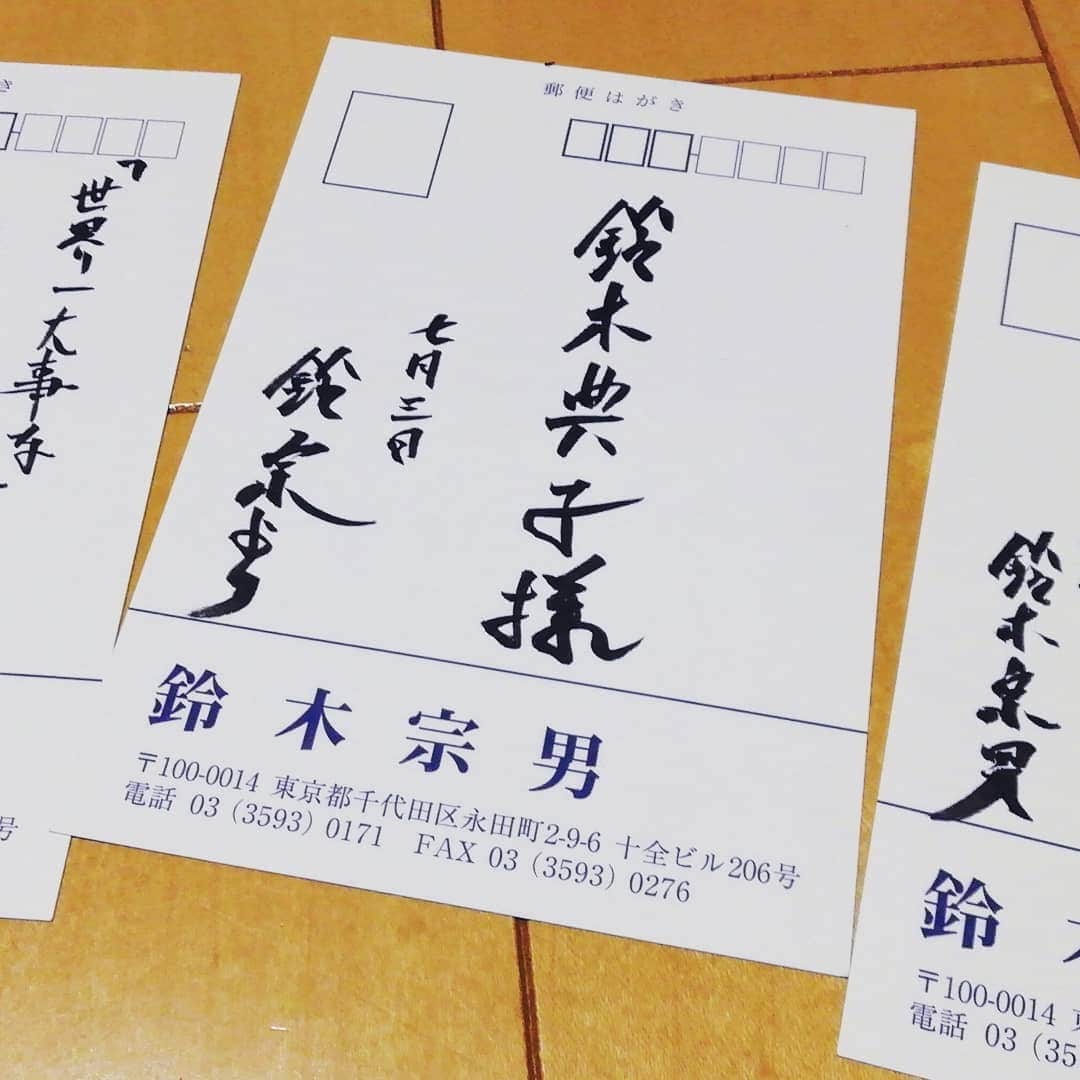 郵便はがき
鈴木典子様
七月三日
鈴木宗男
〒100-0014 東京都千代田区永田町2-9-6 十全ビル206号
電話 03（3593）0171 FAX 03（3593）0276
き
「世界一大事な
号
鈴木宗男
鈴
〒100-0014
電話 03（35